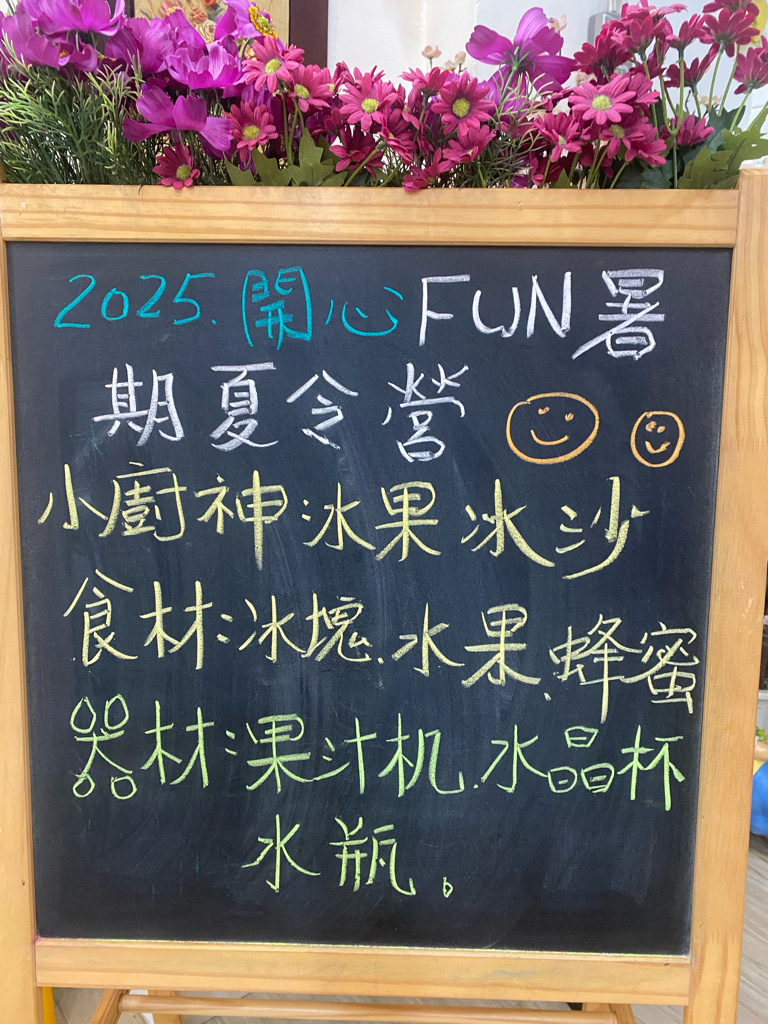 2025.開心FUN暑
期夏令營
小廚神:水果冰沙
食材:冰塊.水果.蜂蜜
器材:果汁机.水晶杯
水瓶。